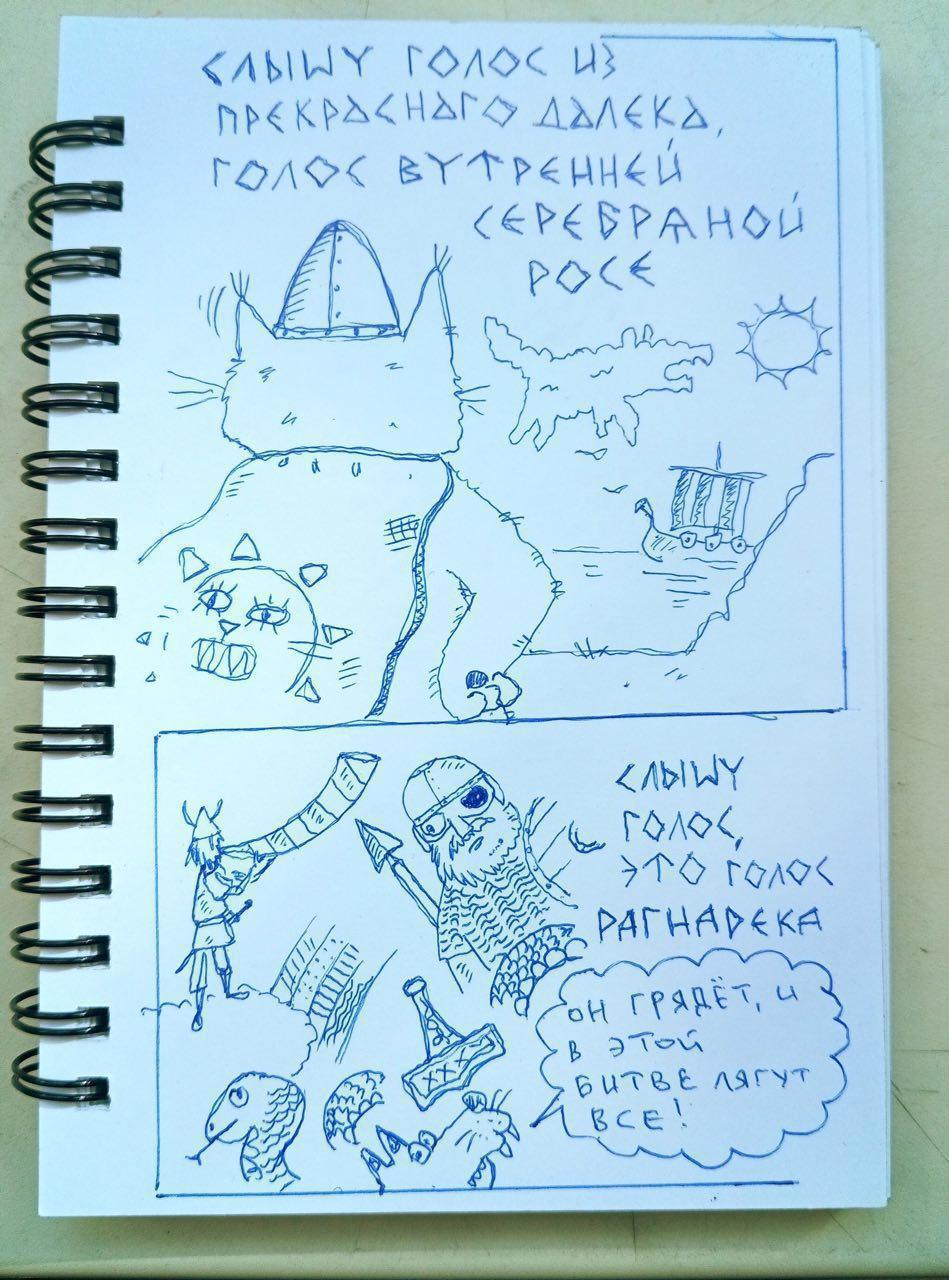 СЛЫШУ ГОЛОС ИЗ
ПРЕКРАСНАГО ДАЛЕКА,
ГОЛОС ВУТРЕННЕЙ
СЕРЕБРѦНОЙ
РОСЕ
СЛЫШУ
ГОЛОС,
ЭТО ГОЛОС
РАГНАРЕКА
ОН ГРЯДЁТ, И
В ЭТОЙ
БИТВЕ ЛЯГУТ
ВСЕ!